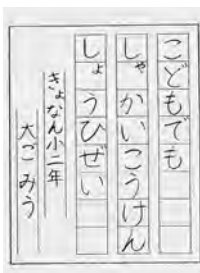 こどもでも
しゃかいこうけん
しょうひぜい
きょなん小二年
大ご みう